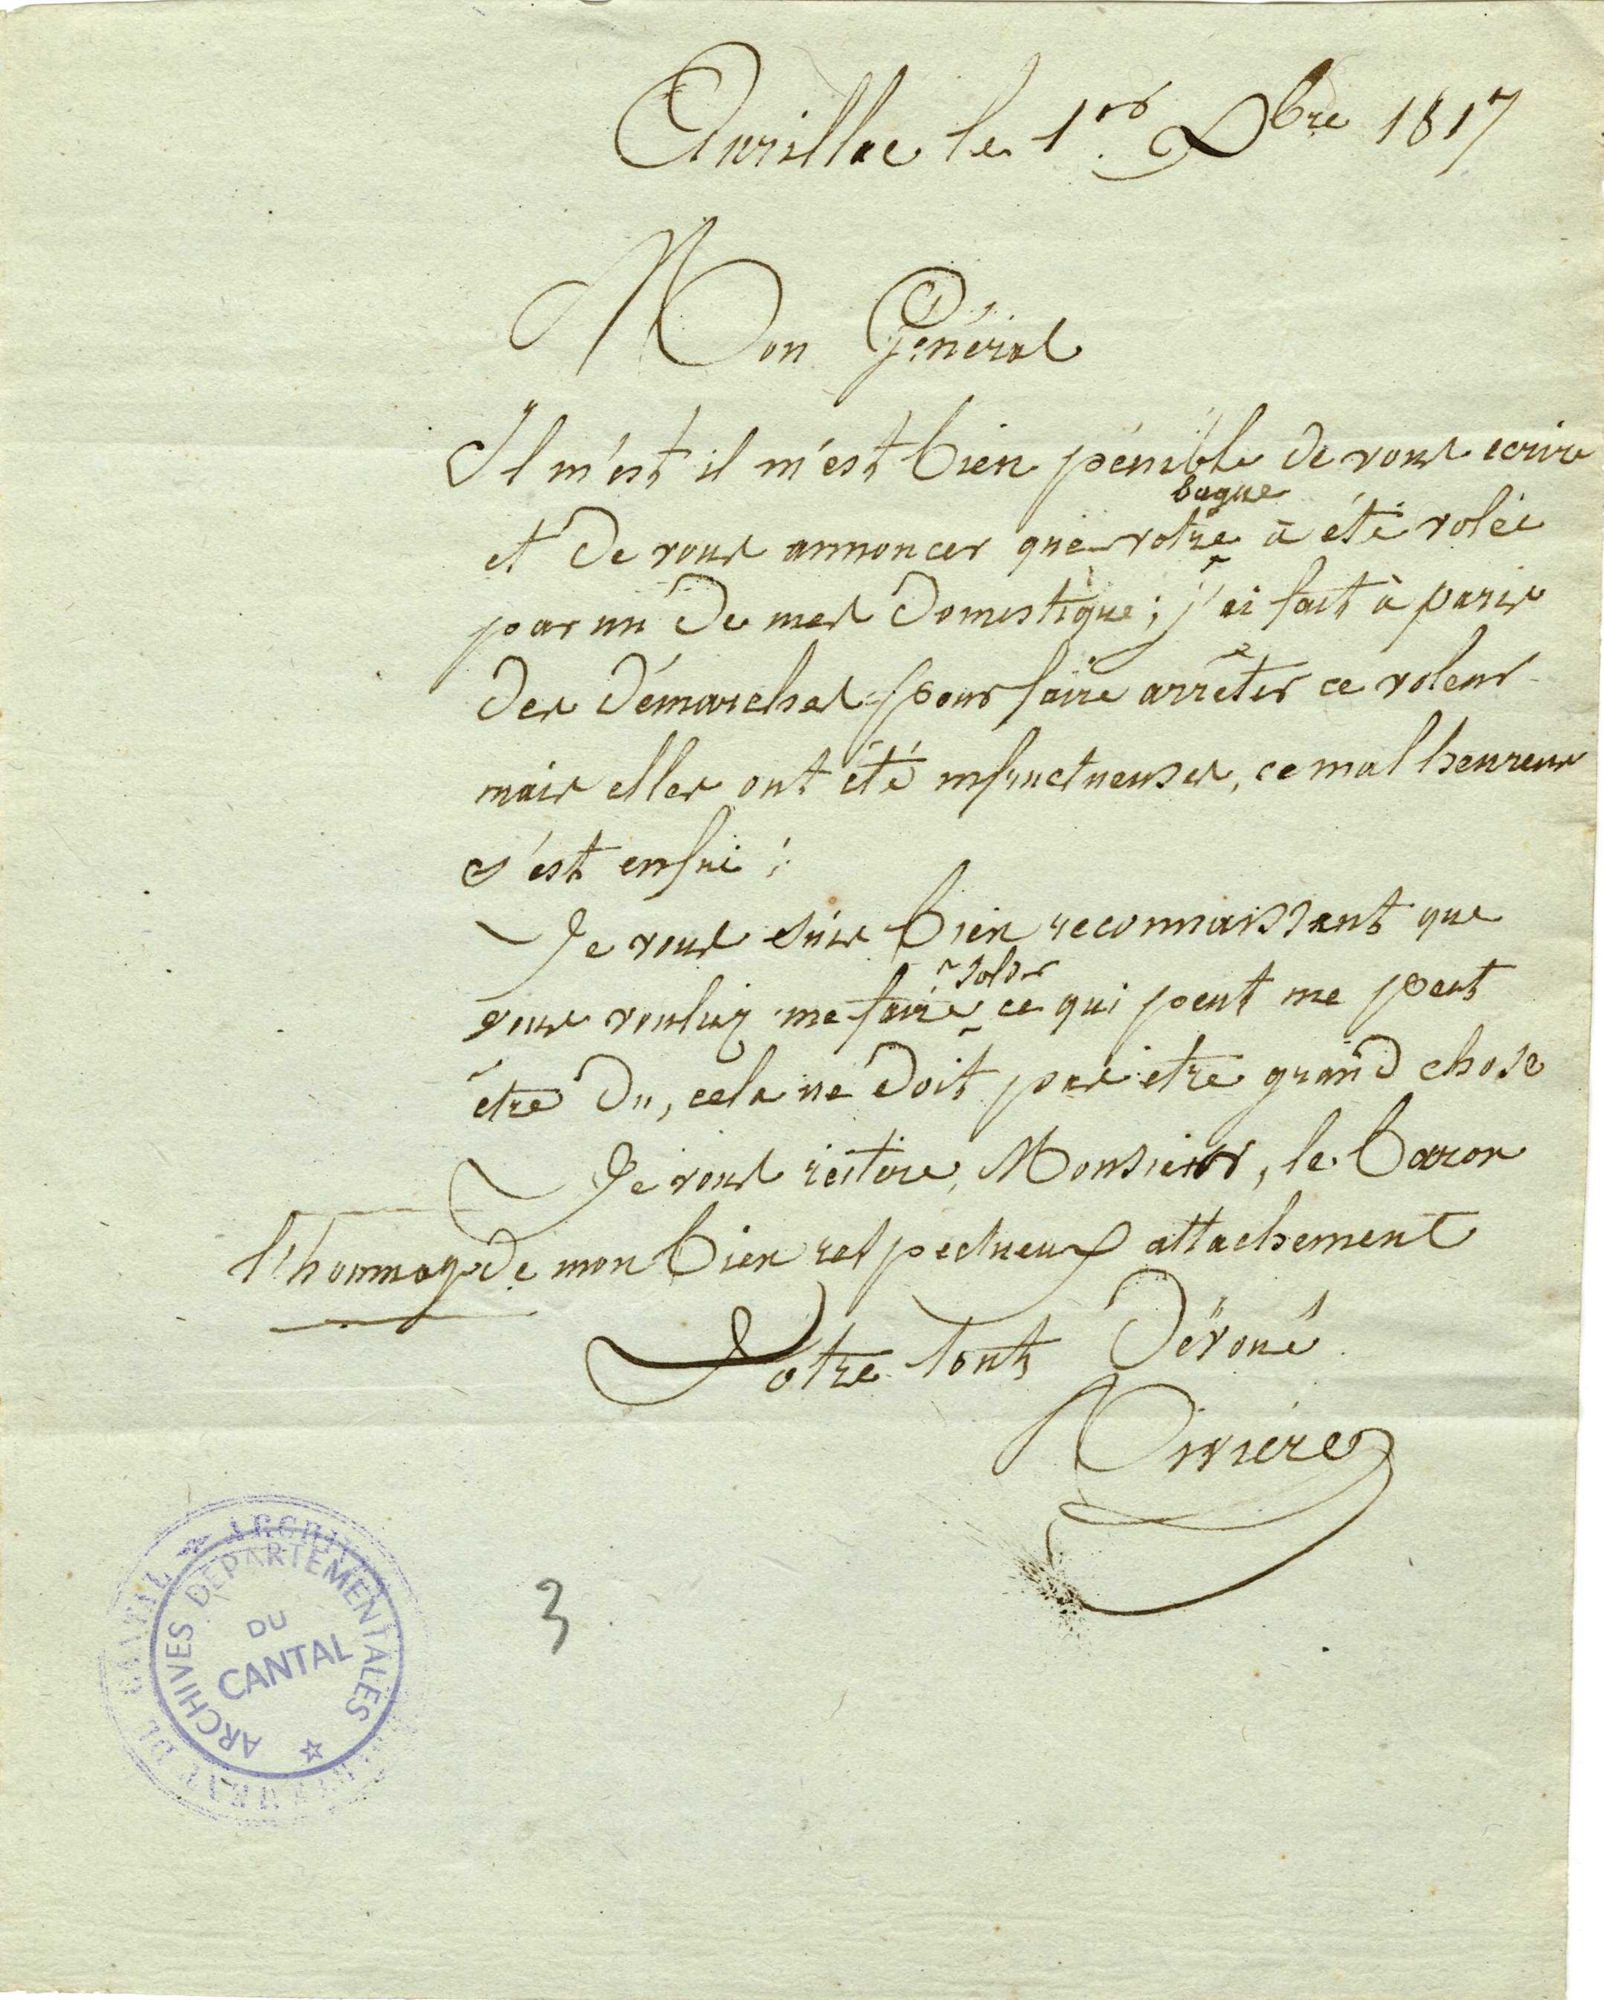 Aurillac le 1er Xbre 1817
Mon Général
Il m'est il m'est bien pénible de vous ecrire
bague
et de vous annoncer que votre a été volée
par un de mes domestique; j'ai fait à paris
des démarches pour faire arrêter ce voleur
mais elles ont été infructueuses, ce malheureux
s'est enfui;
Je vous suis bien reconnaissant que
solder
vous vouliez me faire ce qui peut me peut
être du, cela ne doit pas être grand chose
Je vous réitère, Monsieur, le baron
l'hommage de mon bien respectueux attachement
Votre tout dévoué
Rivière
3
ARCHIVES DEPARTEMENTALES
DU
CANTAL